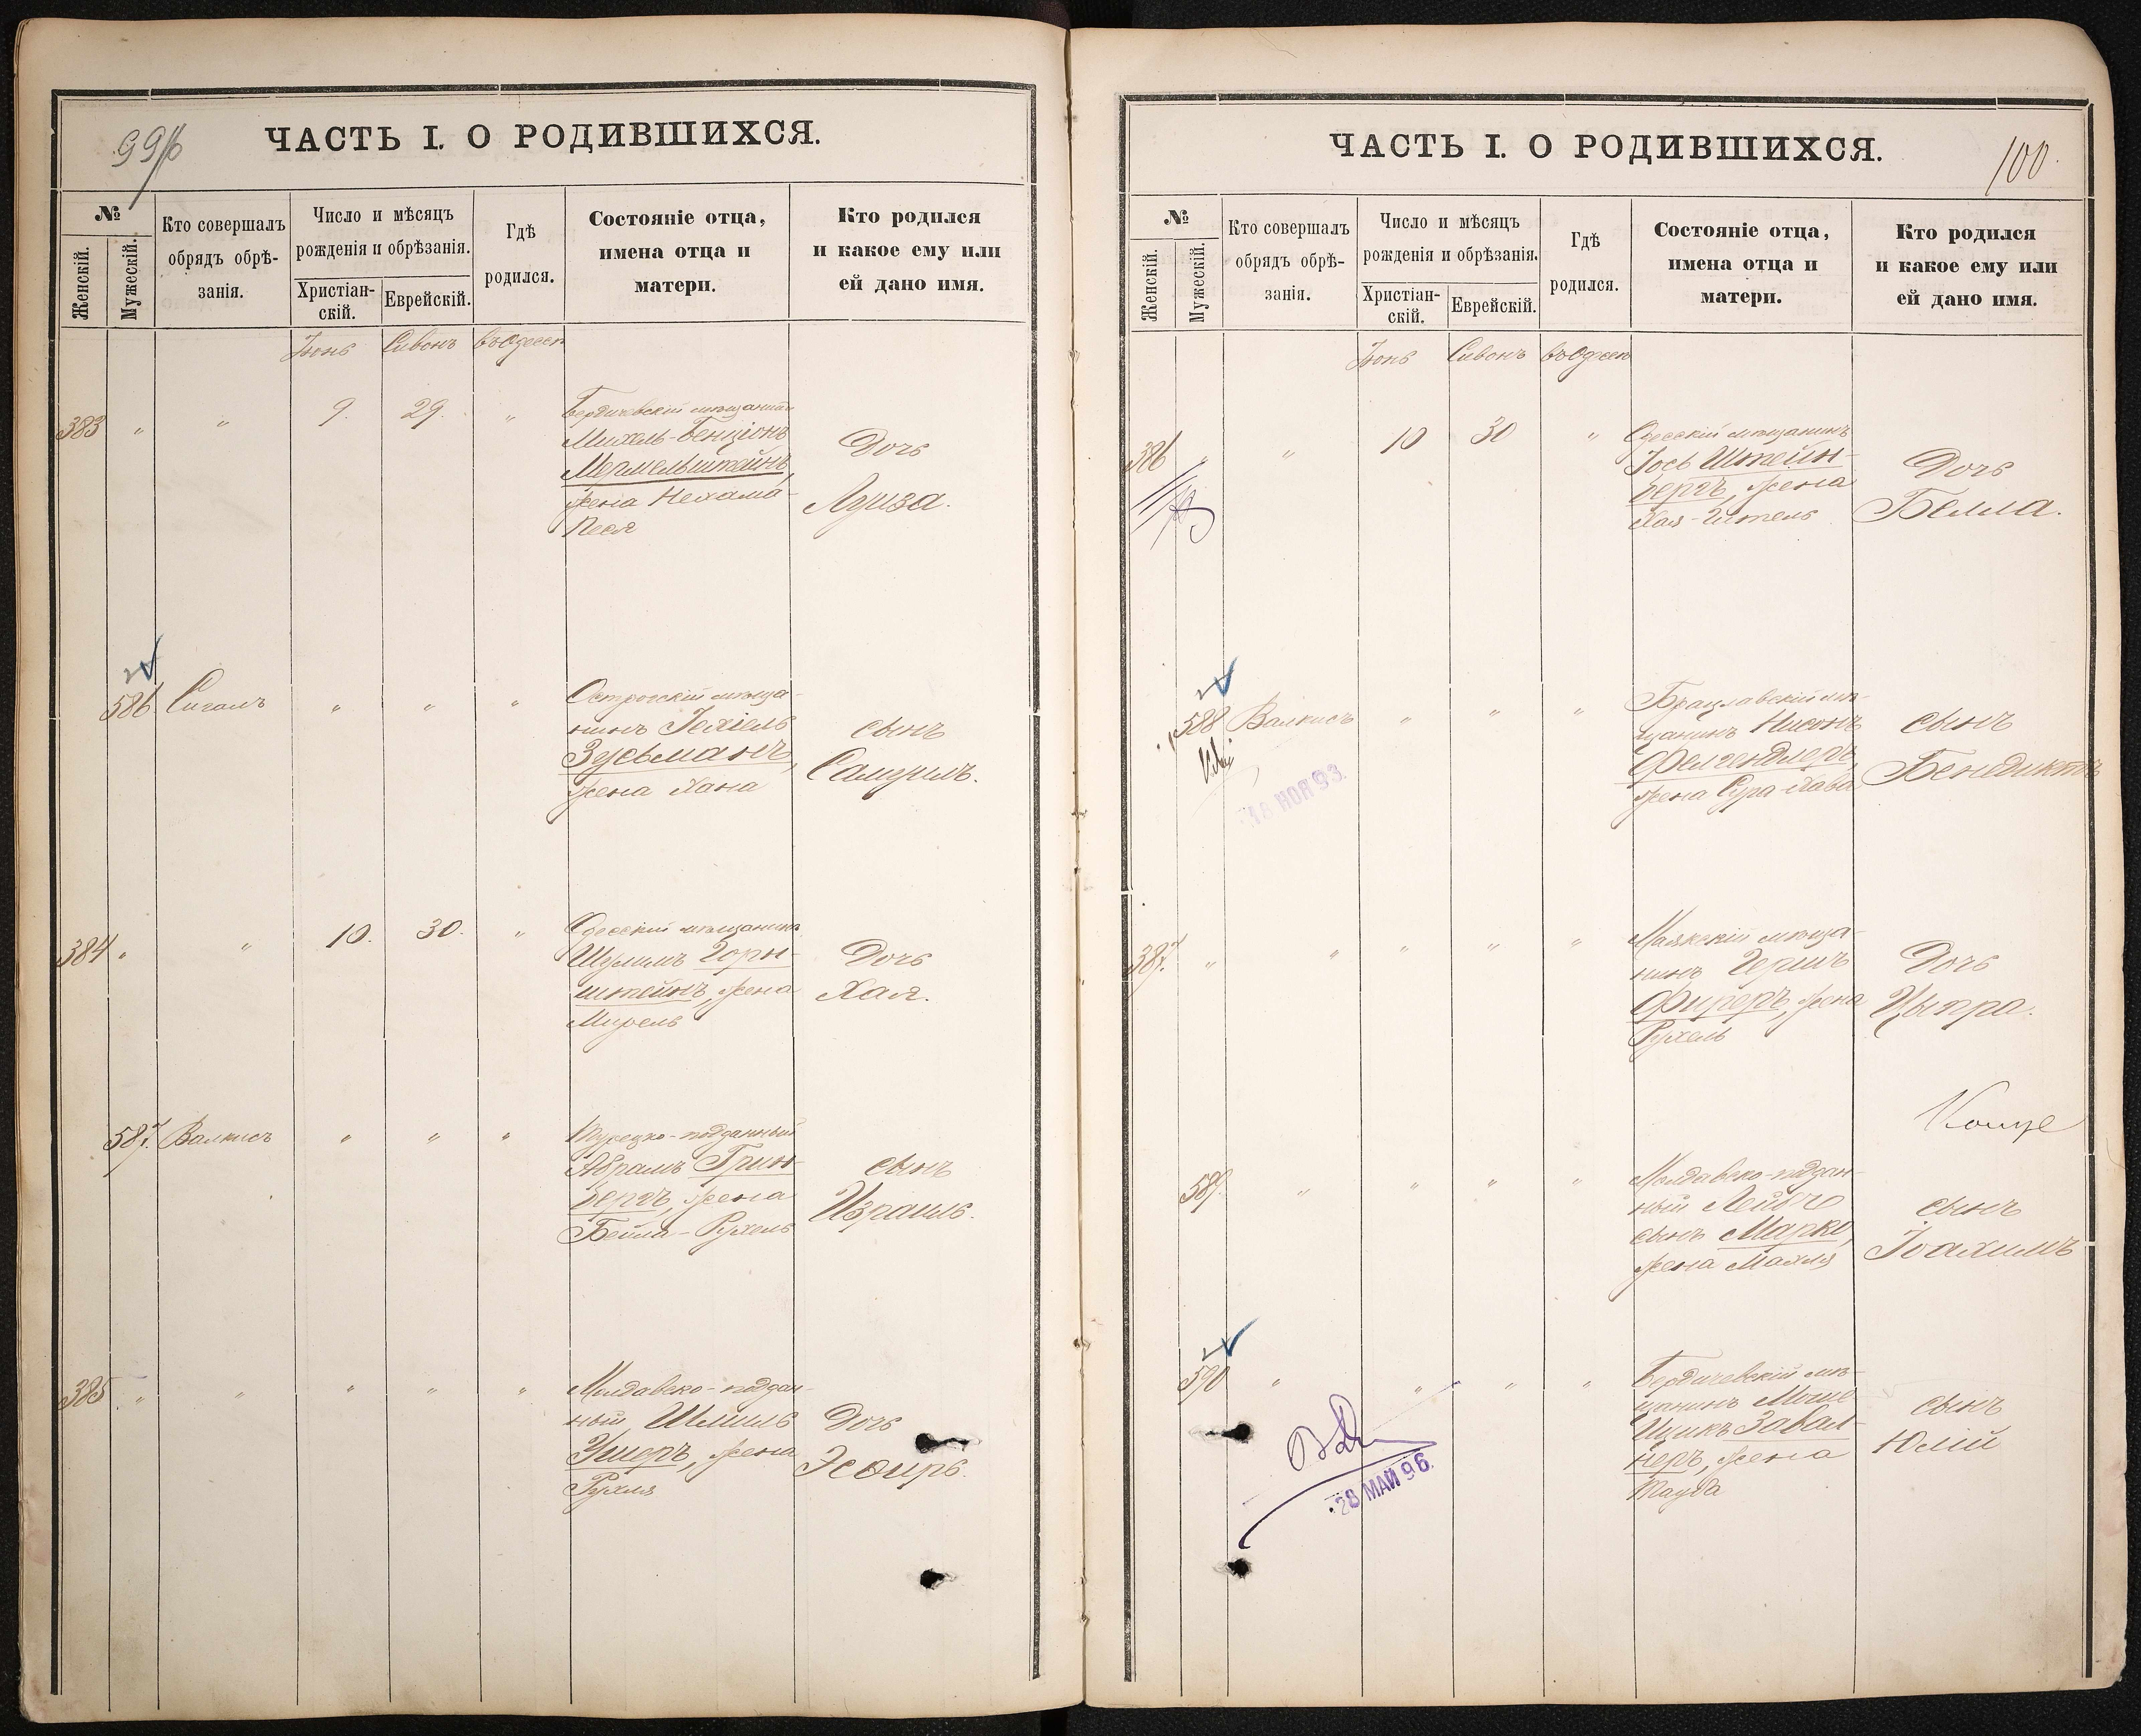 99/б
ЧАСТЬ I. О РОДИВШИХСЯ.
№
Женскій.
Мужескій.
Кто совершалъ
обрядъ обрѣ-
занія.
Число и мѣсяцъ
рожденія и обрѣзанія.
Христіан-
скій.
Еврейскій.
Гдѣ
родился.
Состояніе отца,
имена отца и
матери.
Кто родился
и какое ему или
ей дано имя.
Іюнь Сивонъ въ Одессѣ
383 " " 9. 29. "
Бердичевскій мѣщанинъ
Михель-Бенціонъ
Мермельштейнъ,
жена Нехама-
Песя
Дочь
Луиза.
586 Сигалъ " " "
Острогскій мѣща-
нинъ Іехіель
Зусьманъ,
жена Хана
сынъ
Самуилъ.
384 " " 10. 30. "
Одесскій мѣщанинъ
Шулимъ Горн-
штейнъ, жена
Мирель
Дочь
Хая.
587. Валкисъ " " "
Турецко-подданный
Абрамъ Грин-
бергъ, жена
Бейла-Рухель
сынъ
Израиль.
385 " " " " "
Молдавско-поддан-
ный Шмиль
Ушеръ, жена
Рухля
Дочь
Эсѳирь.
ЧАСТЬ I. О РОДИВШИХСЯ.
100
№
Женскій.
Мужескій.
Кто совершалъ
обрядъ обрѣ-
занія.
Число и мѣсяцъ
рожденія и обрѣзанія.
Христіан-
скій.
Еврейскій.
Гдѣ
родился.
Состояніе отца,
имена отца и
матери.
Кто родился
и какое ему или
ей дано имя.
Іюнь Сивонъ въ Одессѣ
386 " " 10 30 "
Одесскій мѣщанинъ
Іось Штейн-
бергъ, жена
Хая-Гитель
Дочь
Белла.
588 Валкисъ " " "
Брацлавскій мѣ-
щанинъ Нисонъ
Фелендлеръ,
жена Сура-Хава
сынъ
Бенедиктъ
18 НОЯ 93.
387. " " " " "
Маякскій мѣща-
нинъ Гершъ
Фиреръ, жена
Рухель
Дочь
Цыпра.
589. " " " "
Молдавско-поддан-
ный Лейбе
сынъ Марко,
жена Махля
сынъ
Іоахимъ
590 " " " "
Бердичевскій мѣ-
щанинъ Моше
Ицикъ Завал-
неръ, жена
Тауба
сынъ
Юлій
28 МАЙ 96.